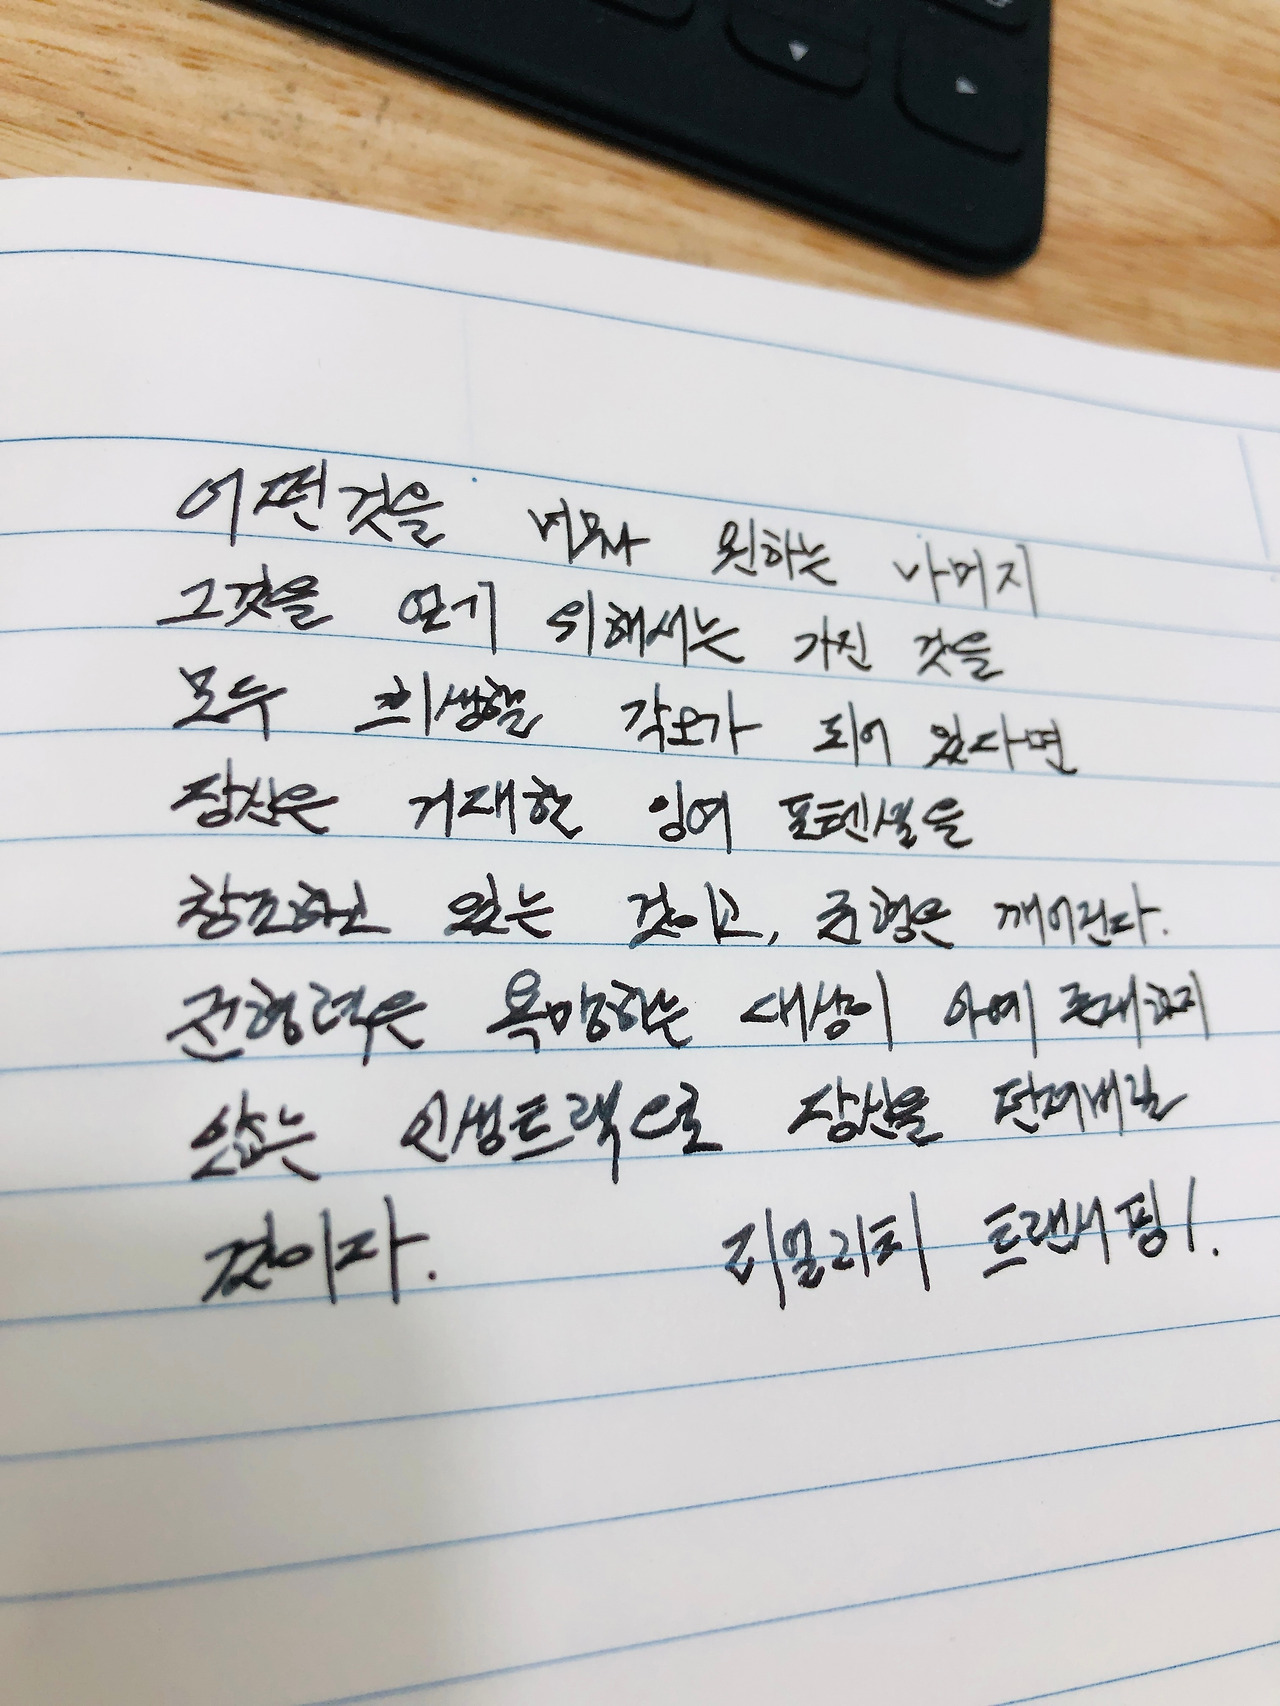 어떤것을 너무나 원하는 나머지
그것을 얻기 위해서는 가진 것을
모두 희생할 각오가 되어 있다면
당신은 거대한 잉여 포텐셜을
창조하고 있는 것이고, 균형은 깨어진다.
균형력은 욕망하는 대상이 아예 존재하지
않는 인생트랙으로 당신을 던져버릴
것이다. 리얼리티 트랜서핑 1.